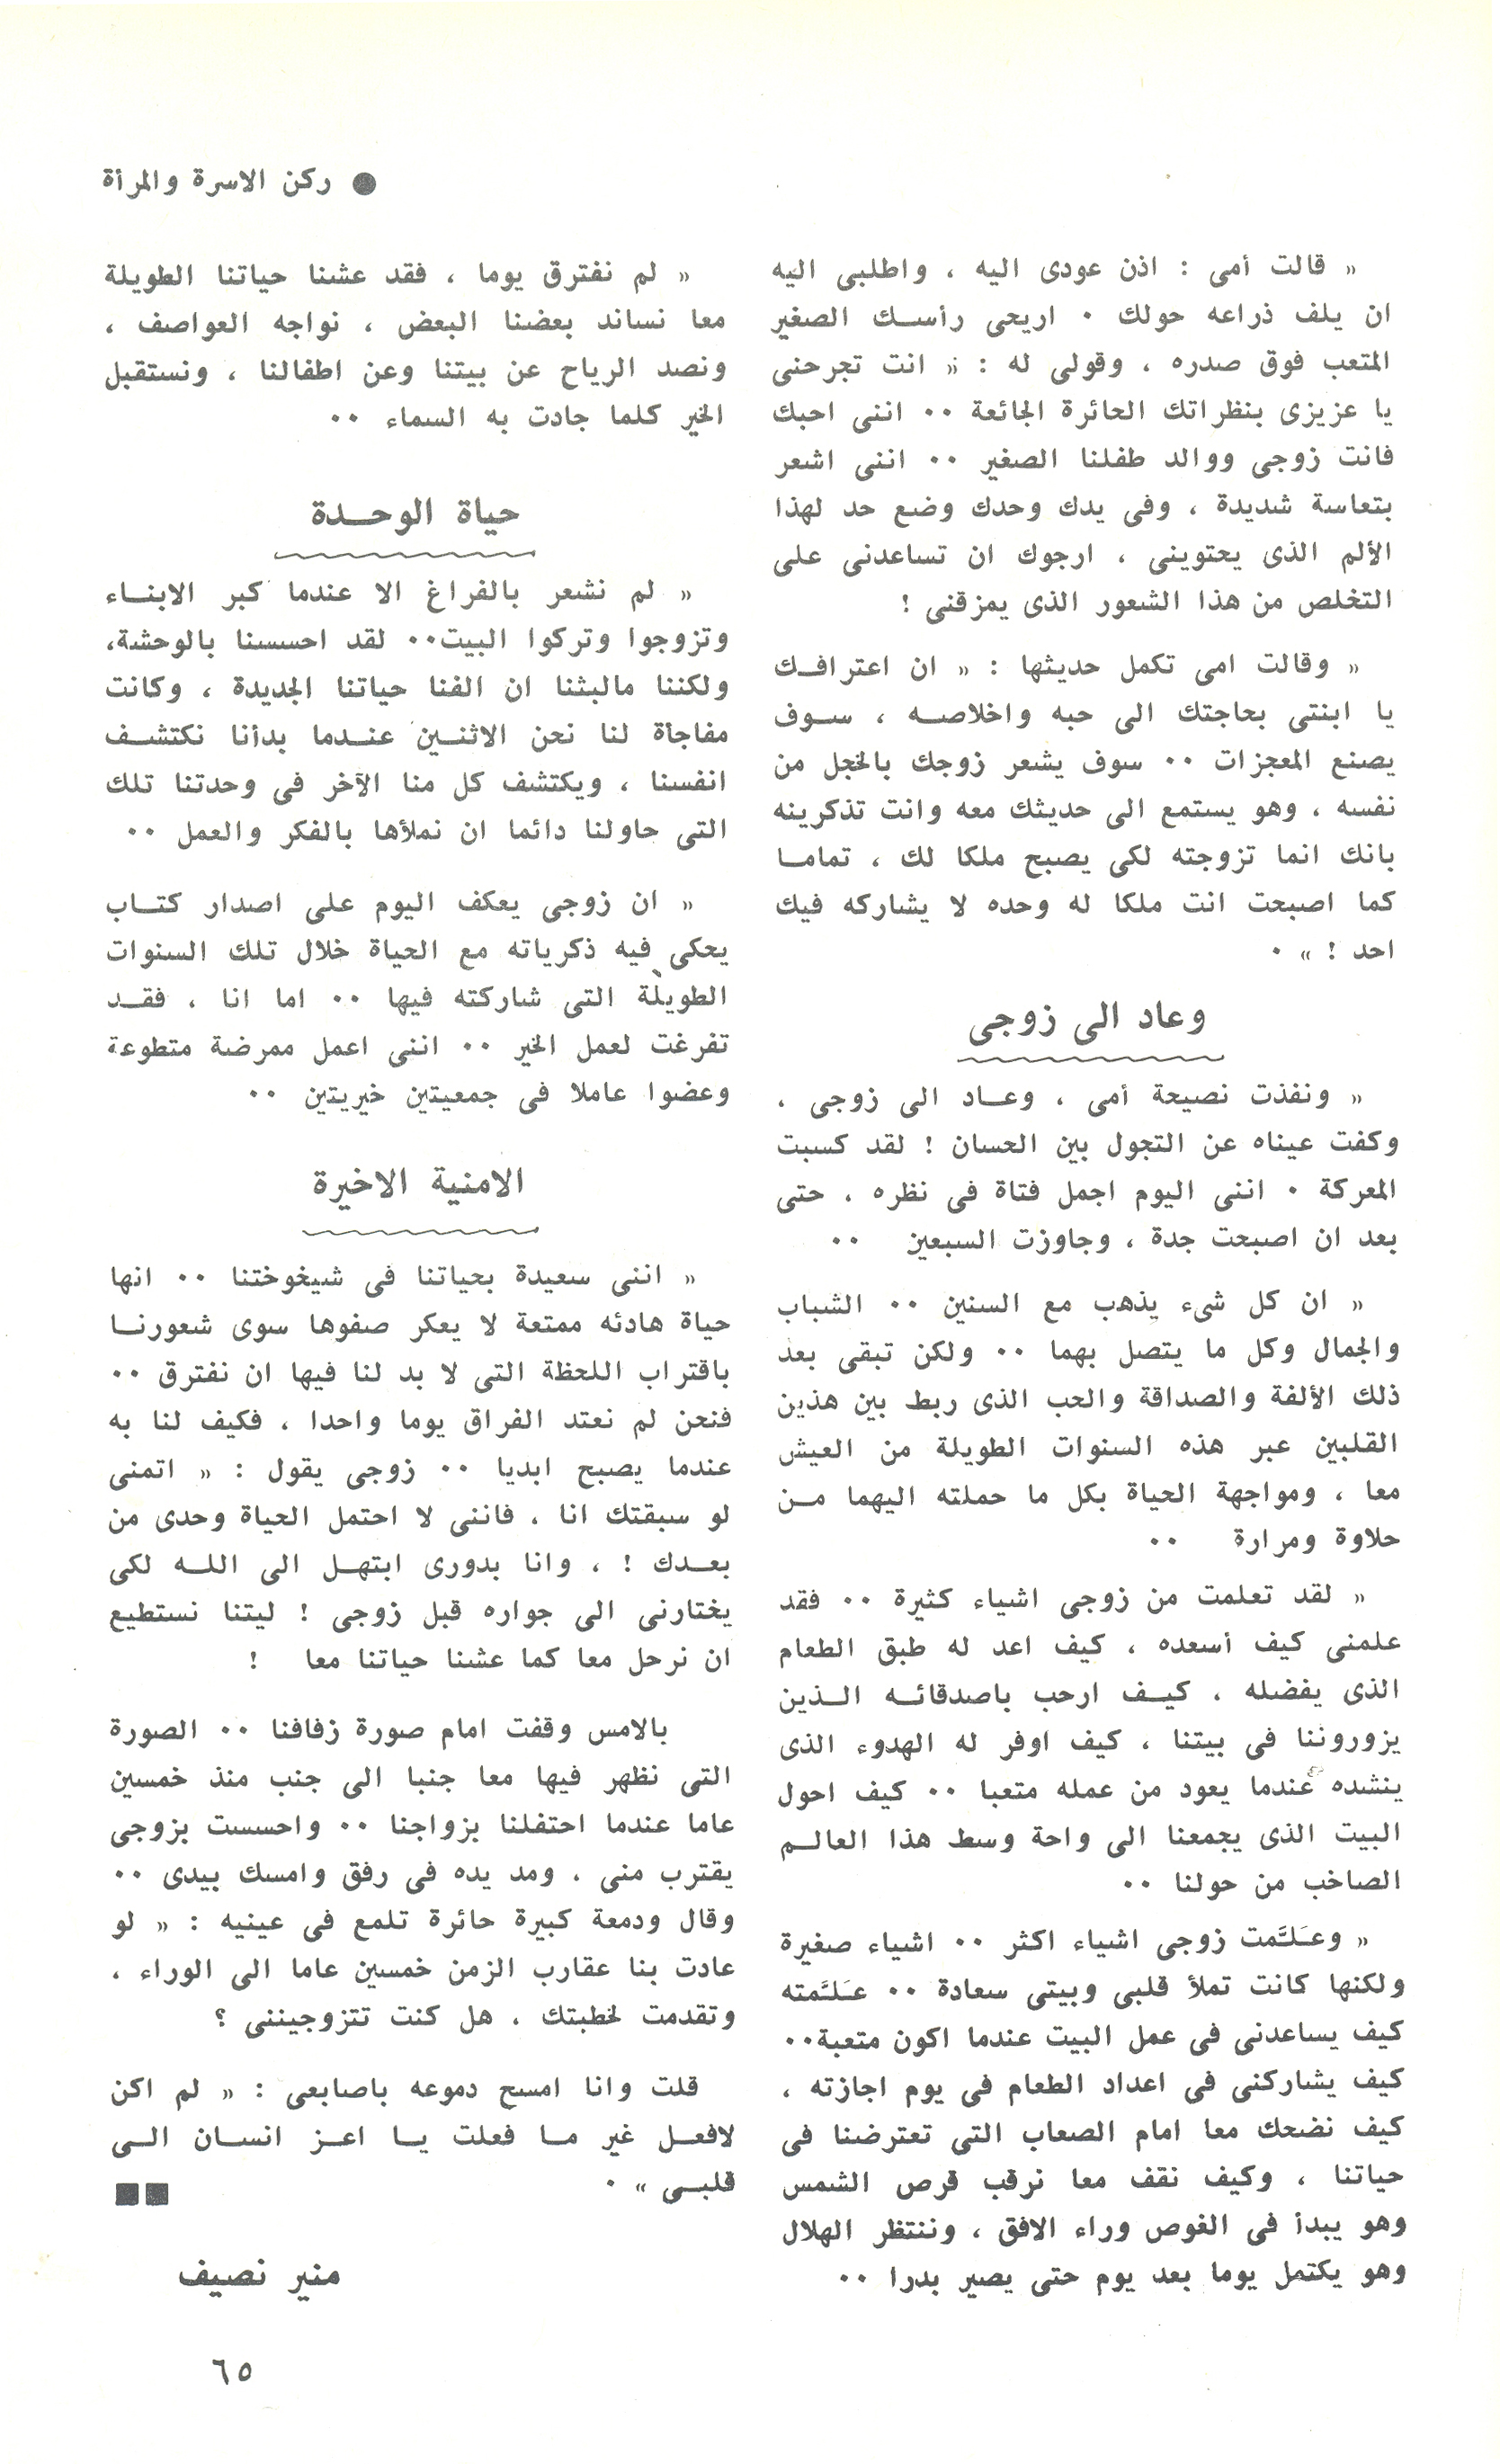 ● ركن الاسرة والمرأة
« قالت أمى : اذن عودى اليه ، واطلبى اليه
ان يلف ذراعه حولك ٠ اريحى رأسـك الصغير
المتعب فوق صدره ، وقولى له : « انت تجرحنى
يا عزيزى بنظراتك الحائرة الجائعة ٠٠ اننى احبك
فانت زوجى ووالد طفلنا الصغير ٠٠ اننى اشعر
بتعاسة شديدة ، وفى يدك وحدك وضع حد لهذا
الألم الذى يحتوينى ، ارجوك ان تساعدنى على
التخلص من هذا الشعور الذى يمزقنى !
« وقالت امى تكمل حديثها : « ان اعترافـك
يا ابنتى بحاجتك الى حبه واخلاصـه ، سـوف
يصنع المعجزات ٠٠ سوف يشعر زوجك بالخجل من
نفسه ، وهو يستمع الى حديثك معه وانت تذكرينه
بانك انما تزوجته لكى يصبح ملكا لك ، تمامـا
كما اصبحت انت ملكا له وحده لا يشاركه فيك
احد ! » ٠
وعاد الى زوجى
« ونفذت نصيحة أمى ، وعـاد الى زوجى ،
وكفت عيناه عن التجول بين الحسان ! لقد كسبت
المعركة ٠ اننى اليوم اجمل فتاة فى نظره ، حتى
بعد ان اصبحت جدة ، وجاوزت السبعين ٠٠
« ان كل شىء يذهب مع السنين ٠٠ الشباب
والجمال وكل ما يتصل بهما ٠٠ ولكن تبقى بعد
ذلك الألفة والصداقة والحب الذى ربط بين هذين
القلبين عبر هذه السنوات الطويلة من العيش
معا ، ومواجهة الحياة بكل ما حملته اليهما مـن
حلاوة ومرارة ٠٠
« لقد تعلمت من زوجى اشياء كثيرة ٠٠ فقد
علمنى كيف أسعده ، كيف اعد له طبق الطعام
الذى يفضله ، كيـف ارحب باصدقائـه الـذين
يزوروننا فى بيتنا ، كيف اوفر له الهدوء الذى
ينشده عندما يعود من عمله متعبا ٠٠ كيف احول
البيت الذى يجمعنا الى واحة وسط هذا العالـم
الصاخب من حولنا ٠٠
« وعَلـَّمت زوجى اشياء اكثر ٠٠ اشياء صغيرة
ولكنها كانت تملأ قلبى وبيتى سعادة ٠٠ عَلـَّمته
كيف يساعدنى فى عمل البيت عندما اكون متعبة٠٠
كيف يشاركنى فى اعداد الطعام فى يوم اجازته ،
كيف نضحك معا امام الصعاب التى تعترضنا فى
حياتنا ، وكيف نقف معا نرقب قرص الشمس
وهو يبدأ فى الغوص وراء الافق ، وننتظر الهلال
وهو يكتمل يوما بعد يوم حتى يصير بدرا ٠٠
« لم نفترق يوما ، فقد عشنا حياتنا الطويلة
معا نساند بعضنا البعض ، نواجه العواصف ،
ونصد الرياح عن بيتنا وعن اطفالنا ، ونستقبل
الخير كلما جادت به السماء ٠٠
حياة الوحـدة
« لم نشعر بالفراغ الا عندما كبر الابنـاء
وتزوجوا وتركوا البيت٠٠ لقد احسسنا بالوحشة،
ولكننا مالبثنا ان الفنا حياتنا الجديدة ، وكانت
مفاجأة لنا نحن الاثنـين عنـدما بدأنا نكتشـف
انفسنا ، ويكتشف كل منا الآخر فى وحدتنا تلك
التى حاولنا دائما ان نملأها بالفكر والعمل ٠٠
« ان زوجى يعكف اليوم على اصدار كتـاب
يحكى فيه ذكرياته مع الحياة خلال تلك السنوات
الطويلة التى شاركته فيها ٠٠ اما انا ، فقـد
تفرغت لعمل الخير ٠٠ اننى اعمل ممرضة متطوعة
وعضوا عاملا فى جمعيتين خيريتين ٠٠
الامنية الاخيرة
« اننى سعيدة بحياتنا فى شيخوختنا ٠٠ انها
حياة هادئه ممتعة لا يعكر صفوها سوى شعورنـا
باقتراب اللحظة التى لا بد لنا فيها ان نفترق ٠٠
فنحن لم نعتد الفراق يوما واحدا ، فكيف لنا به
عندما يصبح ابديا ٠٠ زوجى يقول : « اتمنى
لو سبقتك انا ، فاننى لا احتمل الحياة وحدى من
بعـدك ! ، وانا بدورى ابتهـل الى اللـه لكى
يختارنى الى جواره قبل زوجى ! ليتنا نستطيع
ان نرحل معا كما عشنا حياتنا معا !
بالامس وقفت امام صورة زفافنا ٠٠ الصورة
التى نظهر فيها معا جنبا الى جنب منذ خمسين
عاما عندما احتفلنا بزواجنا ٠٠ واحسست بزوجى
يقترب منى ، ومد يده فى رفق وامسك بيدى ٠٠
وقال ودمعة كبيرة حائرة تلمع فى عينيه : « لو
عادت بنا عقارب الزمن خمسين عاما الى الوراء ،
وتقدمت لخطبتك ، هل كنت تتزوجيننى ؟
قلت وانا امسح دموعه باصابعى : « لم اكن
لافعـل غير مـا فعلت يـا اعـز انسـان الـى
قلبـى » ٠ ■■
منير نصيف
٦٥